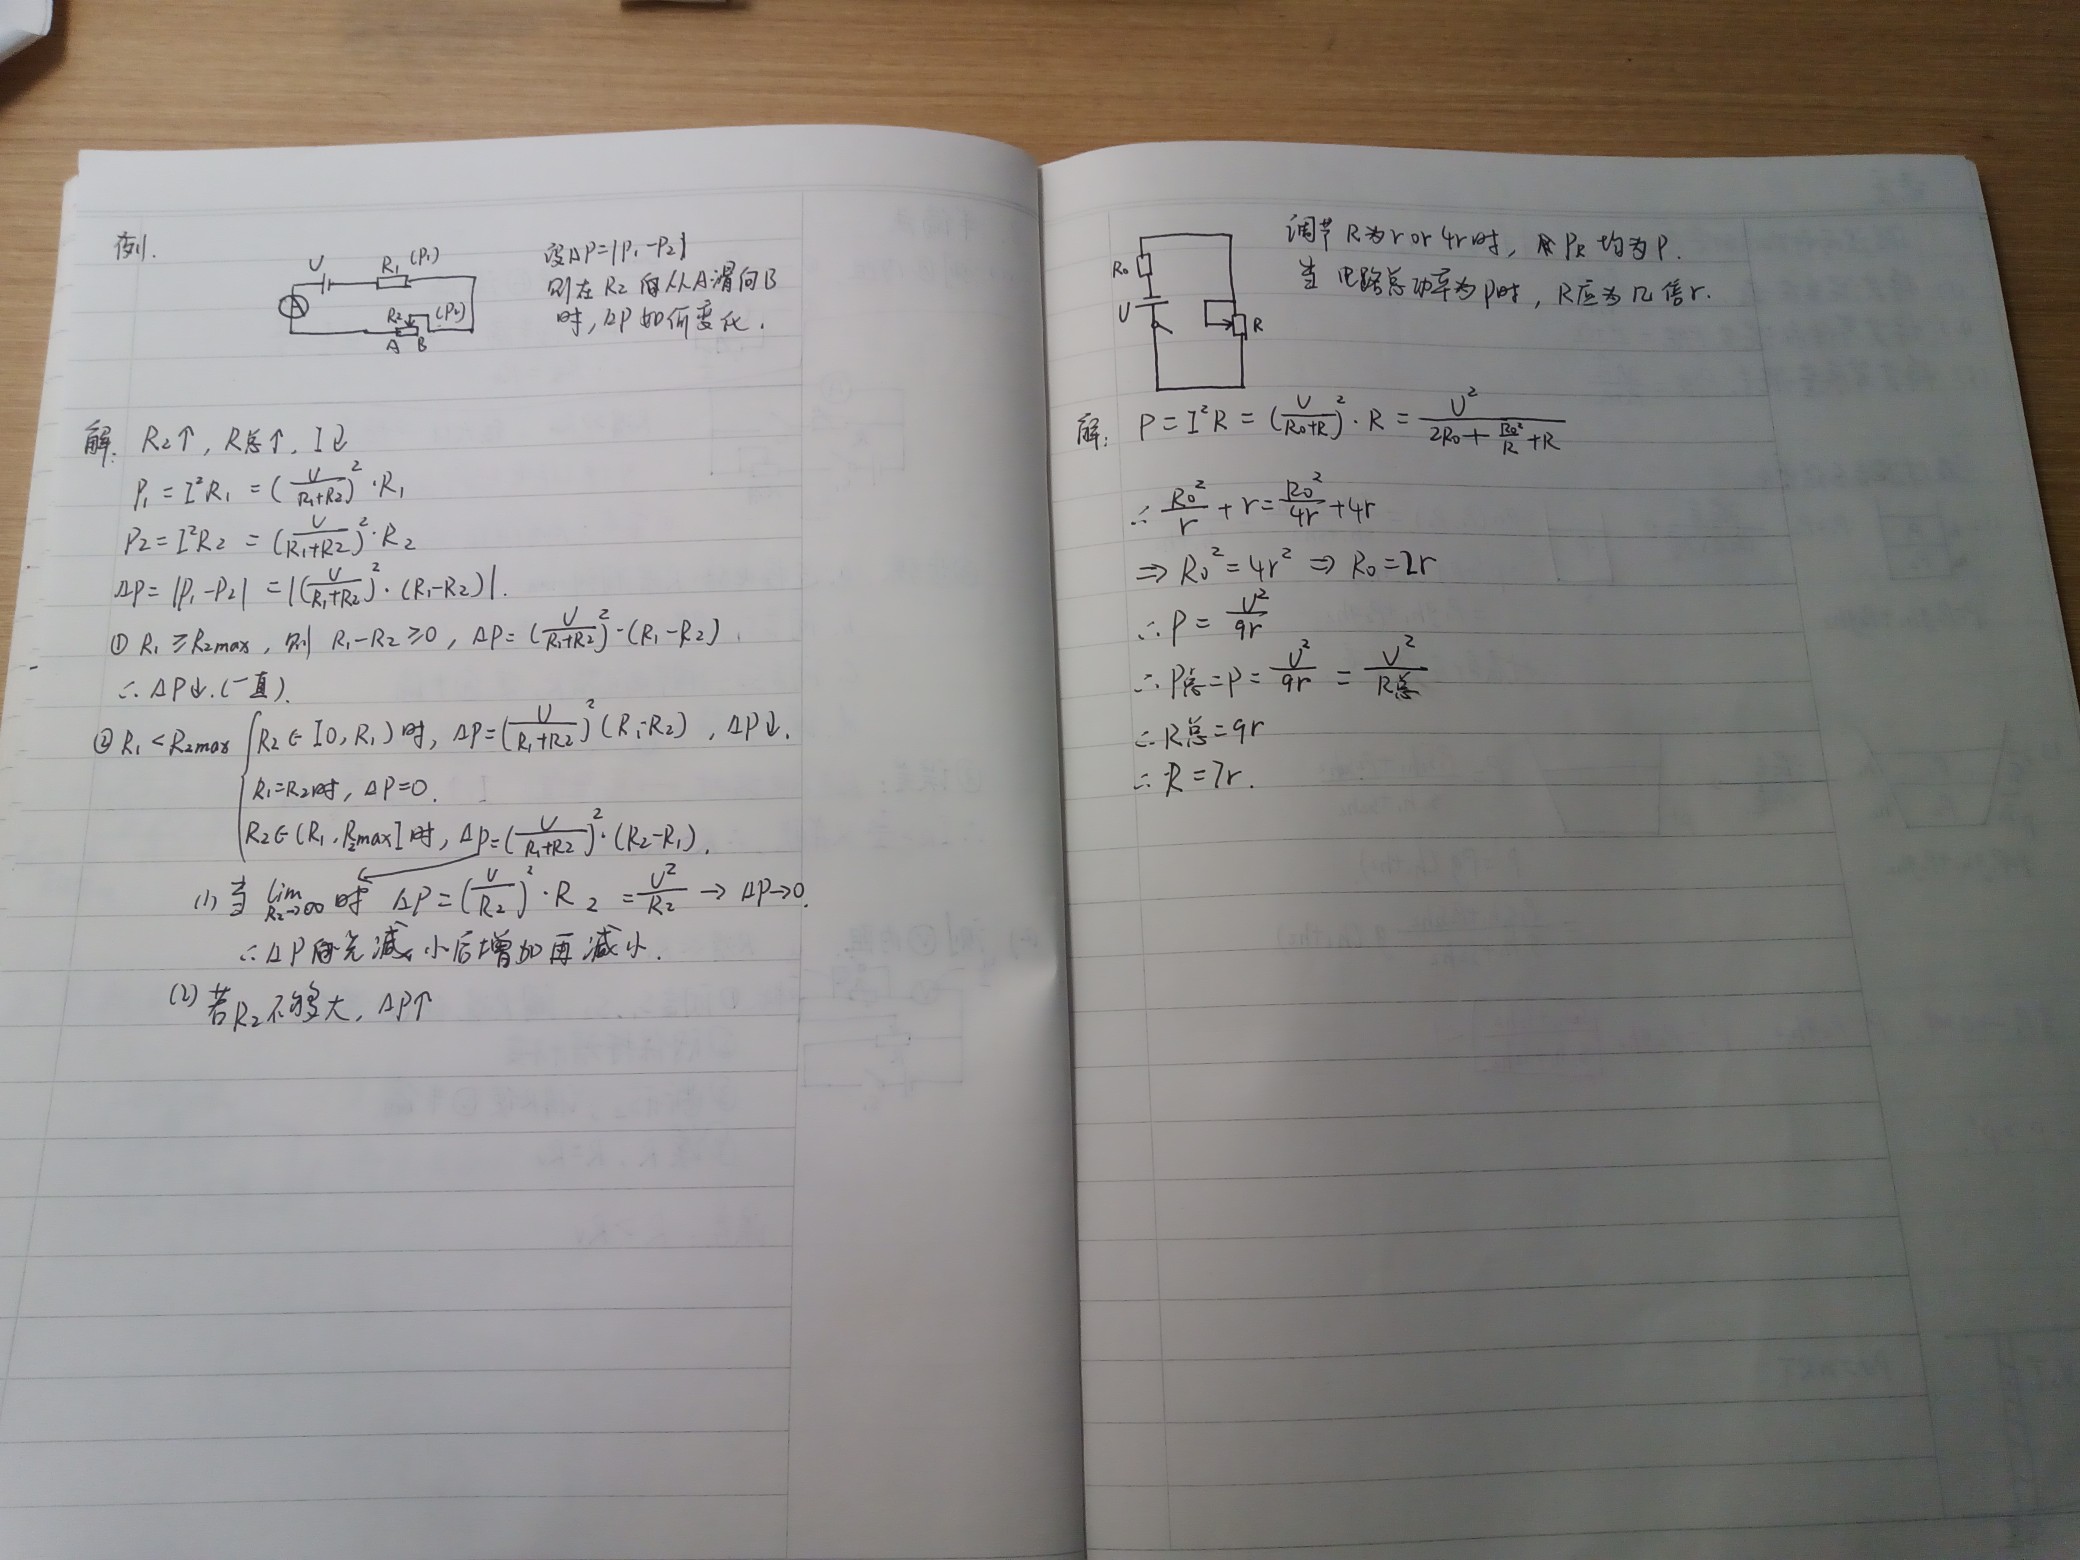 例1.
U R₁ (P₁)
A R₂ (P₂)
A B
设ΔP=|P₁-P₂|
则在R₂从A滑向B
时,ΔP如何变化.
解. R₂↑, R总↑, I↓
P₁ = I²R₁ = (U/(R₁+R₂))²·R₁
P₂ = I²R₂ = (U/(R₁+R₂))²·R₂
ΔP = |P₁-P₂| = |(U/(R₁+R₂))²·(R₁-R₂)|.
① R₁ ≥ R₂max, 则 R₁-R₂ ≥ 0, ΔP = (U/(R₁+R₂))²·(R₁-R₂).
∴ ΔP↓.(一直).
② R₁ < R₂max { R₂∈[0,R₁)时, ΔP=(U/(R₁+R₂))²(R₁-R₂), ΔP↓.
R₁=R₂时, ΔP=0.
R₂∈(R₁,R₂max]时, ΔP=(U/(R₁+R₂))²·(R₂-R₁).
(1) 当 lim R₂→∞ 时 ΔP=(U/R₂)²·R₂ = U²/R₂ → ΔP→0.
∴ΔP先减小后增加再减小.
(2) 若R₂不够大, ΔP↑
R₀
U R
调节R为r or 4r时, P_R均为P.
当电路总功率为P时, R应为几倍r.
解: P = I²R = (U/(R₀+R))²·R = U²/(2R₀+R₀²/R+R)
∴ R₀²/r + r = R₀²/4r + 4r
⇒ R₀² = 4r² ⇒ R₀ = 2r
∴ P = U²/9r
∴ P总 = P = U²/9r = U²/R总
∴ R总 = 9r
∴ R = 7r.